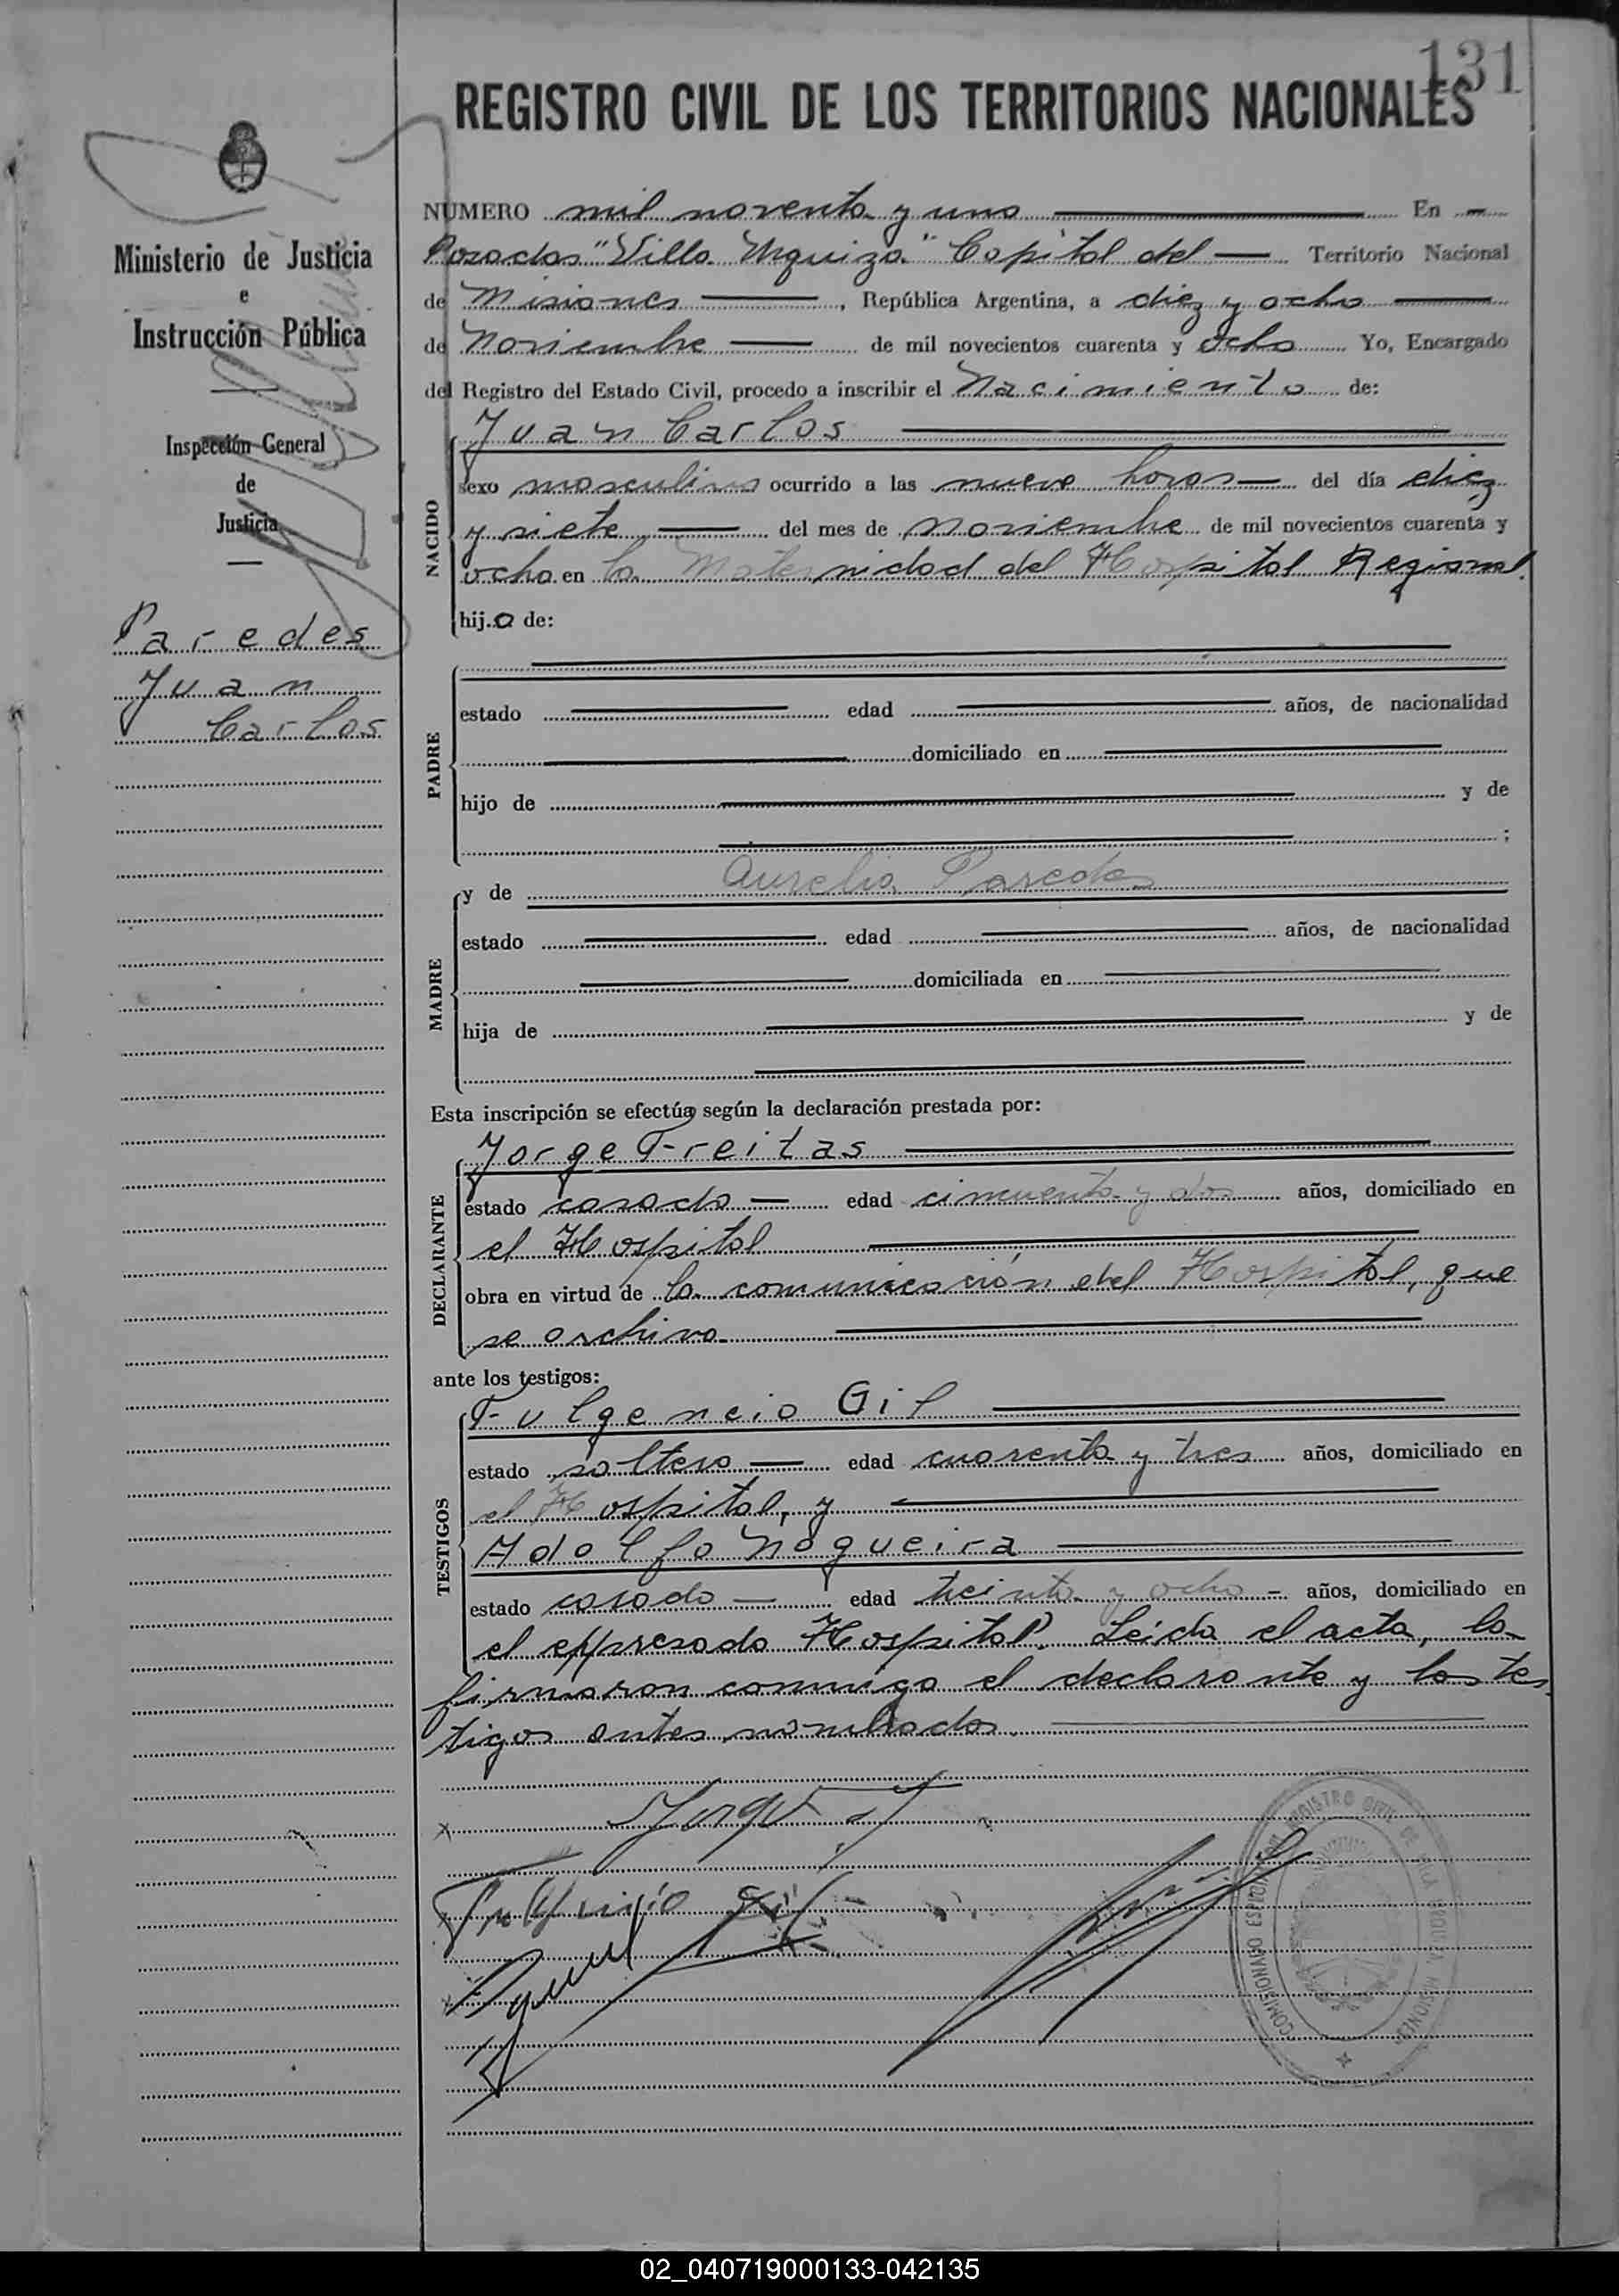 131
REGISTRO CIVIL DE LOS TERRITORIOS NACIONALES
Ministerio de Justicia
e
Instrucción Pública
Inspección General
de
Justicia
Paredes
Juan
Carlos
NUMERO mil noventa y uno En
Posadas "Villa Urquiza" Capital del Territorio Nacional
de Misiones, República Argentina, a diez y ocho
de Noviembre de mil novecientos cuarenta y ocho Yo, Encargado
del Registro del Estado Civil, procedo a inscribir el Nacimiento de:
NACIDO
Juan Carlos
sexo masculino ocurrido a las nueve horas del día diez
y siete del mes de noviembre de mil novecientos cuarenta y
ocho en la Maternidad del Hospital Regional.
hijo de:
PADRE
estado edad años, de nacionalidad
domiciliado en
hijo de y de
;
MADRE
y de Aurelia Paredes
estado edad años, de nacionalidad
domiciliada en
hija de y de
Esta inscripción se efectúa según la declaración prestada por:
DECLARANTE
Jorge Freitas
estado casado edad cincuenta y dos años, domiciliado en
el Hospital
obra en virtud de la comunicación del Hospital, que
se archiva.
ante los testigos:
TESTIGOS
Fulgencio Gil
estado soltero edad cuarenta y tres años, domiciliado en
el Hospital, y
Adolfo Nogueira
estado casado edad treinta y ocho años, domiciliado en
el expresado Hospital. Leída el acta, la
firmaron conmigo el declarante y los tes
tigos antes nombrados.
COMISIONADO ESPECIAL DE REGISTRO CIVIL DE VILLA URQUIZA MISIONES
02_040719000133-042135